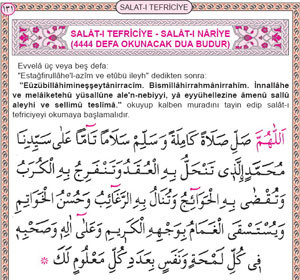 ١٣١
SALAT-I TEFRİCİYE
SALÂT-I TEFRİCİYE - SALÂT-I NÂRİYE
(4444 DEFA OKUNACAK DUA BUDUR)
Evvelâ üç veya beş defa:
"Estağfirullâhe'l-azîm ve etûbü ileyh" dedikten sonra:
"Eûzübillâhimineşşeytânirracîm. Bismillâhirrahmânirrahîm. İnnallâhe
ve melâiketehû yüsallûne ale'n-nebiyyi, yâ eyyühellezîne âmenû sallû
aleyhi ve sellimû teslîmâ." okuyup kalben muradını tayin edip salât-ı
tefriciyeyi okumaya başlamalıdır.
اَللّٰهُمَّ صَلِّ صَلَاةً كَامِلَةً وَ سَلِّمْ سَلَامًا تَآمًّا عَلٰى سَيِّدِنَا
مُحَمَّدٍ الَّذِى تَنْحَلُّ بِهِ الْعُقَدُ وَتَنْفَرِجُ بِهِ الْكُرَبُ
وَتُقْضٰى بِهِ الْحَوَآئِجُ وَتُنَالُ بِهِ الرَّغَآئِبُ وَحُسْنُ الْخَوَاتِمِ
وَيُسْتَسْقَى الْغَمَامُ بِوَجْهِهِ الْكَرِيمِ وَعَلٰٓى اٰلِهِ وَصَحْبِهِ
فِى كُلِّ لَمْحَةٍ وَنَفَسٍ بِعَدَدِ كُلِّ مَعْلُومٍ لَكَ